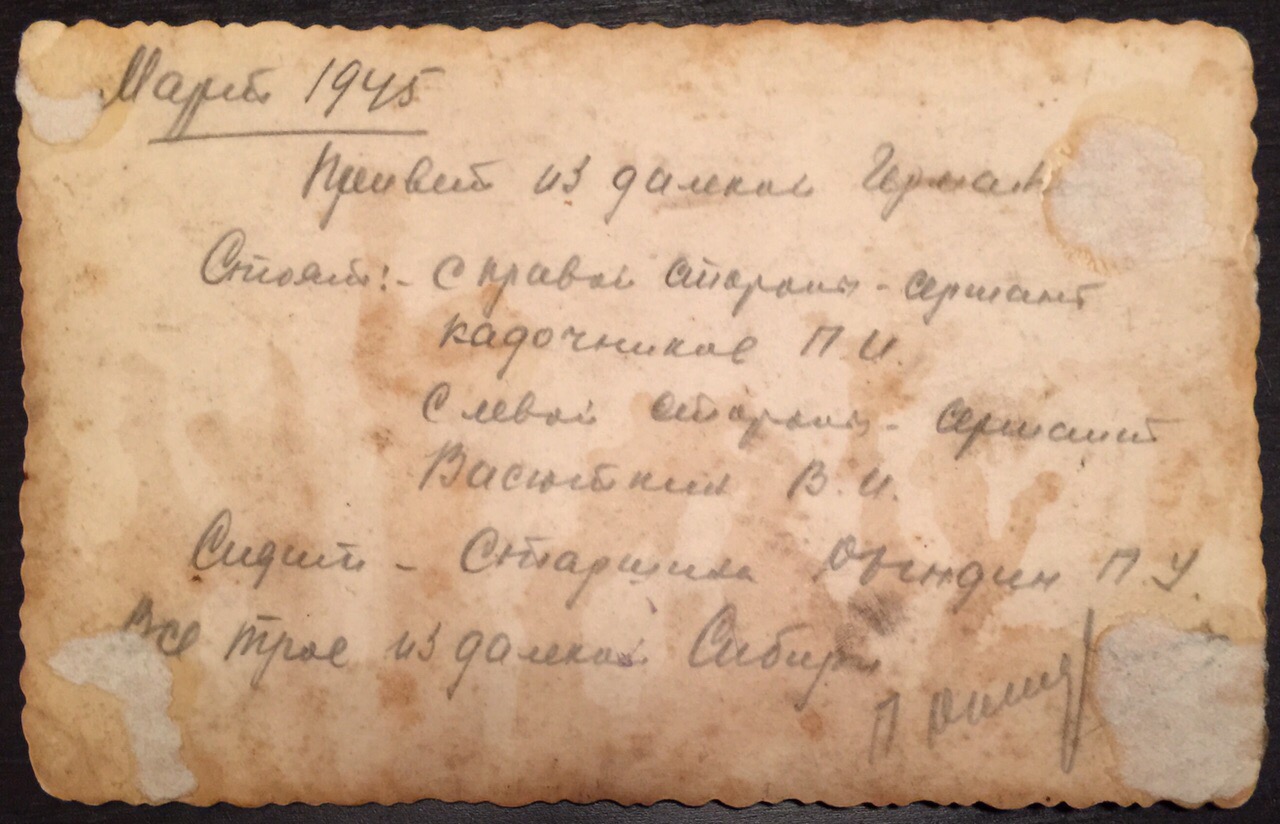 Март 1945
Привет из далекой Герман
Стоят:- с правой стороны - сержант
Кадочников П И.
с левой стороны - сержант
Васюткин В. И.
Сидит - Старшина П У.
Все трое из далекой Сибири
П